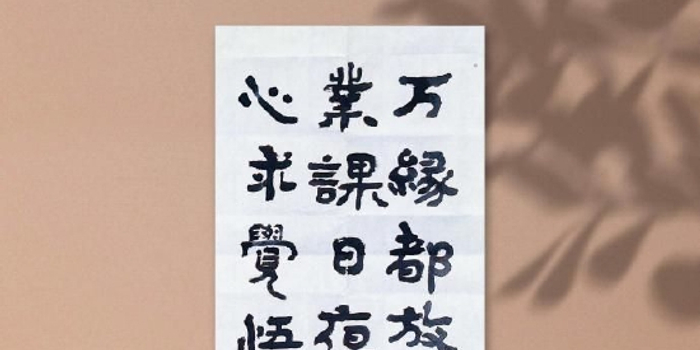 万缘都放
業課日夜
心求覺悟